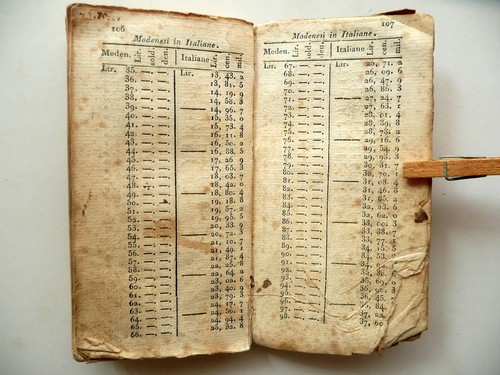 106
Modenesi in Italiane.
Moden. Lir. sold. den. Italiane Lir. cen. mil.
Lir. 35. —. —. Lir. 13, 43. 2
36. —. —. 13, 81. 5
37. —. —. 14, 19. 9
38. —. —. 14, 58. 3
39. —. —. — 14, 96. 7
40. —. —. 15, 35. 0
41. —. —. 15, 73. 4
42. —. —. 16, 11. 8
43. —. —. 16, 50. 2
44. —. —. — 16, 88. 5
45. —. —. 17, 26. 9
46. —. —. 17, 65. 3
47. —. —. 18, 03. 7
48. —. —. 18, 42. 0
49. —. —. — 18, 80. 4
50. —. —. 19, 18. 8
51. —. —. 19, 57. 2
52. —. —. 19, 95. 5
53. —. —. 20, 33. 9
54. —. —. — 20, 72. 3
55. —. —. 21, 10. 7
56. —. —. 21, 49. 1
57. —. —. 21, 87. 4
58. —. —. 22, 25. 8
59. —. —. — 22, 64. 2
60. —. —. 23, 02. 6
61. —. —. 23, 40. 9
62. —. —. 23, 79. 3
63. —. —. 24, 17. 7
64. —. —. — 24, 56. 1
65. —. —. 24, 94. 4
66. —. —. 25, 32. 8
107
Modenesi in Italiane.
Moden. Lir. sold. den. Italiane Lir. cen. mil.
Lir. 67. —. —. Lir. 25, 71. 2
68. —. —. 26, 09. 6
69. —. —. 26, 47. 9
70. —. —. 26, 86. 3
71. —. —. — 27, 24. 7
72. —. —. 27, 63. 1
73. —. —. 28, 01. 4
74. —. —. 28, 39. 8
75. —. —. 28, 78. 2
76. —. —. — 29, 16. 6
77. —. —. 29, 54. 9
78. —. —. 29, 93. 3
79. —. —. 30, 31. 7
80. —. —. 30, 70.
81. —. —. — 31, 08. 4
82. —. —. 31, 46. 8
83. —. —. 31, 85. 2
84. —. —. 32, 23. 6
85. —. —. 32, 62. 0
86. —. —. — 33, 00. 3
87. —. —. 33, 38. 7
88. —. —. 33, 77. 1
89. —. —. 34, 15. 5
90. —. —. 34, 53. 8
91. —. —. — 34, 92. 2
92. —. —. 35, 30. 6
93. —. —. 35, 69. 0
94. —. —. 36, 07. 3
95. —. —. 36, 45.
96. —. —. — 36, 84.
97. —. —. 37, 22.
98. —. —. 37, 60